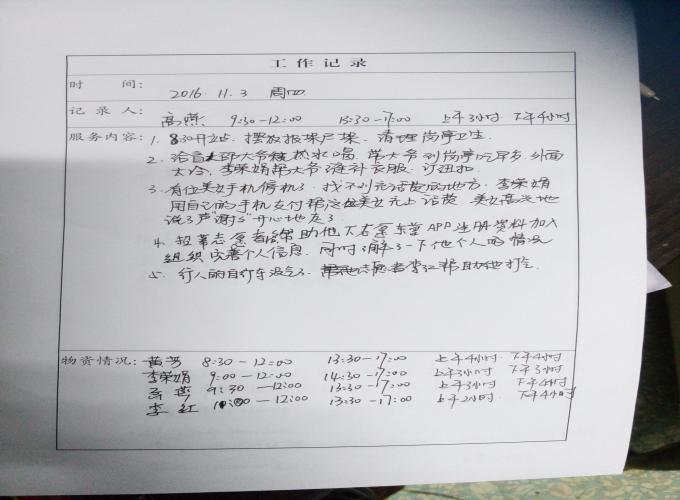 工作记录
时 间: 2016. 11. 3 周四
记录人: 高燕 9:30-12:00 13:30-17:00 上午3小时 下午4小时
服务内容: 1. 8:30开站. 摆放报架尸架. 清理岗亭卫生
2. 给 大爷 热水喝. 带大爷到岗亭吃早歺. 外面
太冷. 李荣娟帮大爷缝补衣服. 订纽扣
3. 有位美女手机停机了. 找不到充话费的地方. 李荣娟
用自己的手机支付帮这位美女充上话费. 美女高兴地
说了声"谢谢"开心地走了.
4. 志愿者 帮助他下右 APP注册资料加入
组织完善个人信息. 同时了解了一下他个人的情况
5. 行人的自行车没气了. 志愿者李红帮助他打气.
物资情况: 黄芳 8:30-12:00 13:30-17:00 上午4小时. 下午4小时
李荣娟 9:00-12:00 14:30-17:00 上午3小时 下午3小时
高燕 9:30-12:00 13:30-17:00 上午3小时. 下午4小时
李红 10:00-12:00 13:30-17:00 上午2小时. 下午4小时